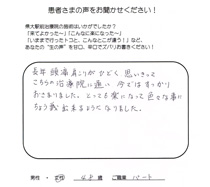 患者さまの声をお聞かせください！
県大駅前治療院の施術はいかがでしたか？
「来てよかった～」「こんなに楽になった～」
「いままで行ったトコと、こんなとこが違う！」など、
あなたの“生の声”を甘口、辛口でズバリお書きください！
長年頭痛肩こりがひどく思いきって
こちらの治療院に通い今ではすっかり
おさまりました。とっても楽になって色々な事に
ちょう戦出来るようになりました。
男性・女性 48歳 ご職業 パート